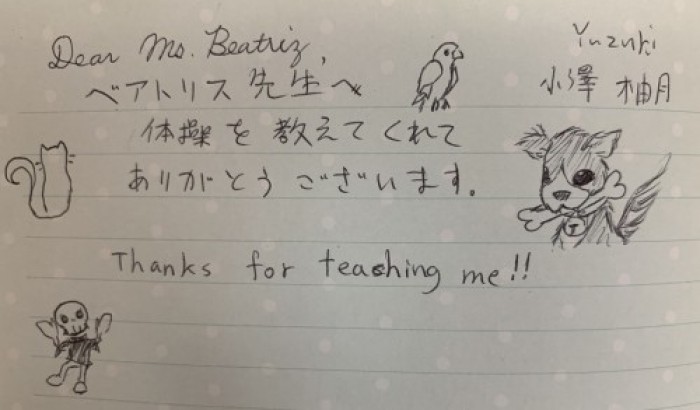 Dear Ms. Beatriz,
ベアトリス 先生へ
Yuzuki
小澤 柚月
体操を教えてくれて
ありがとうございます。
Thanks for teaching me!!